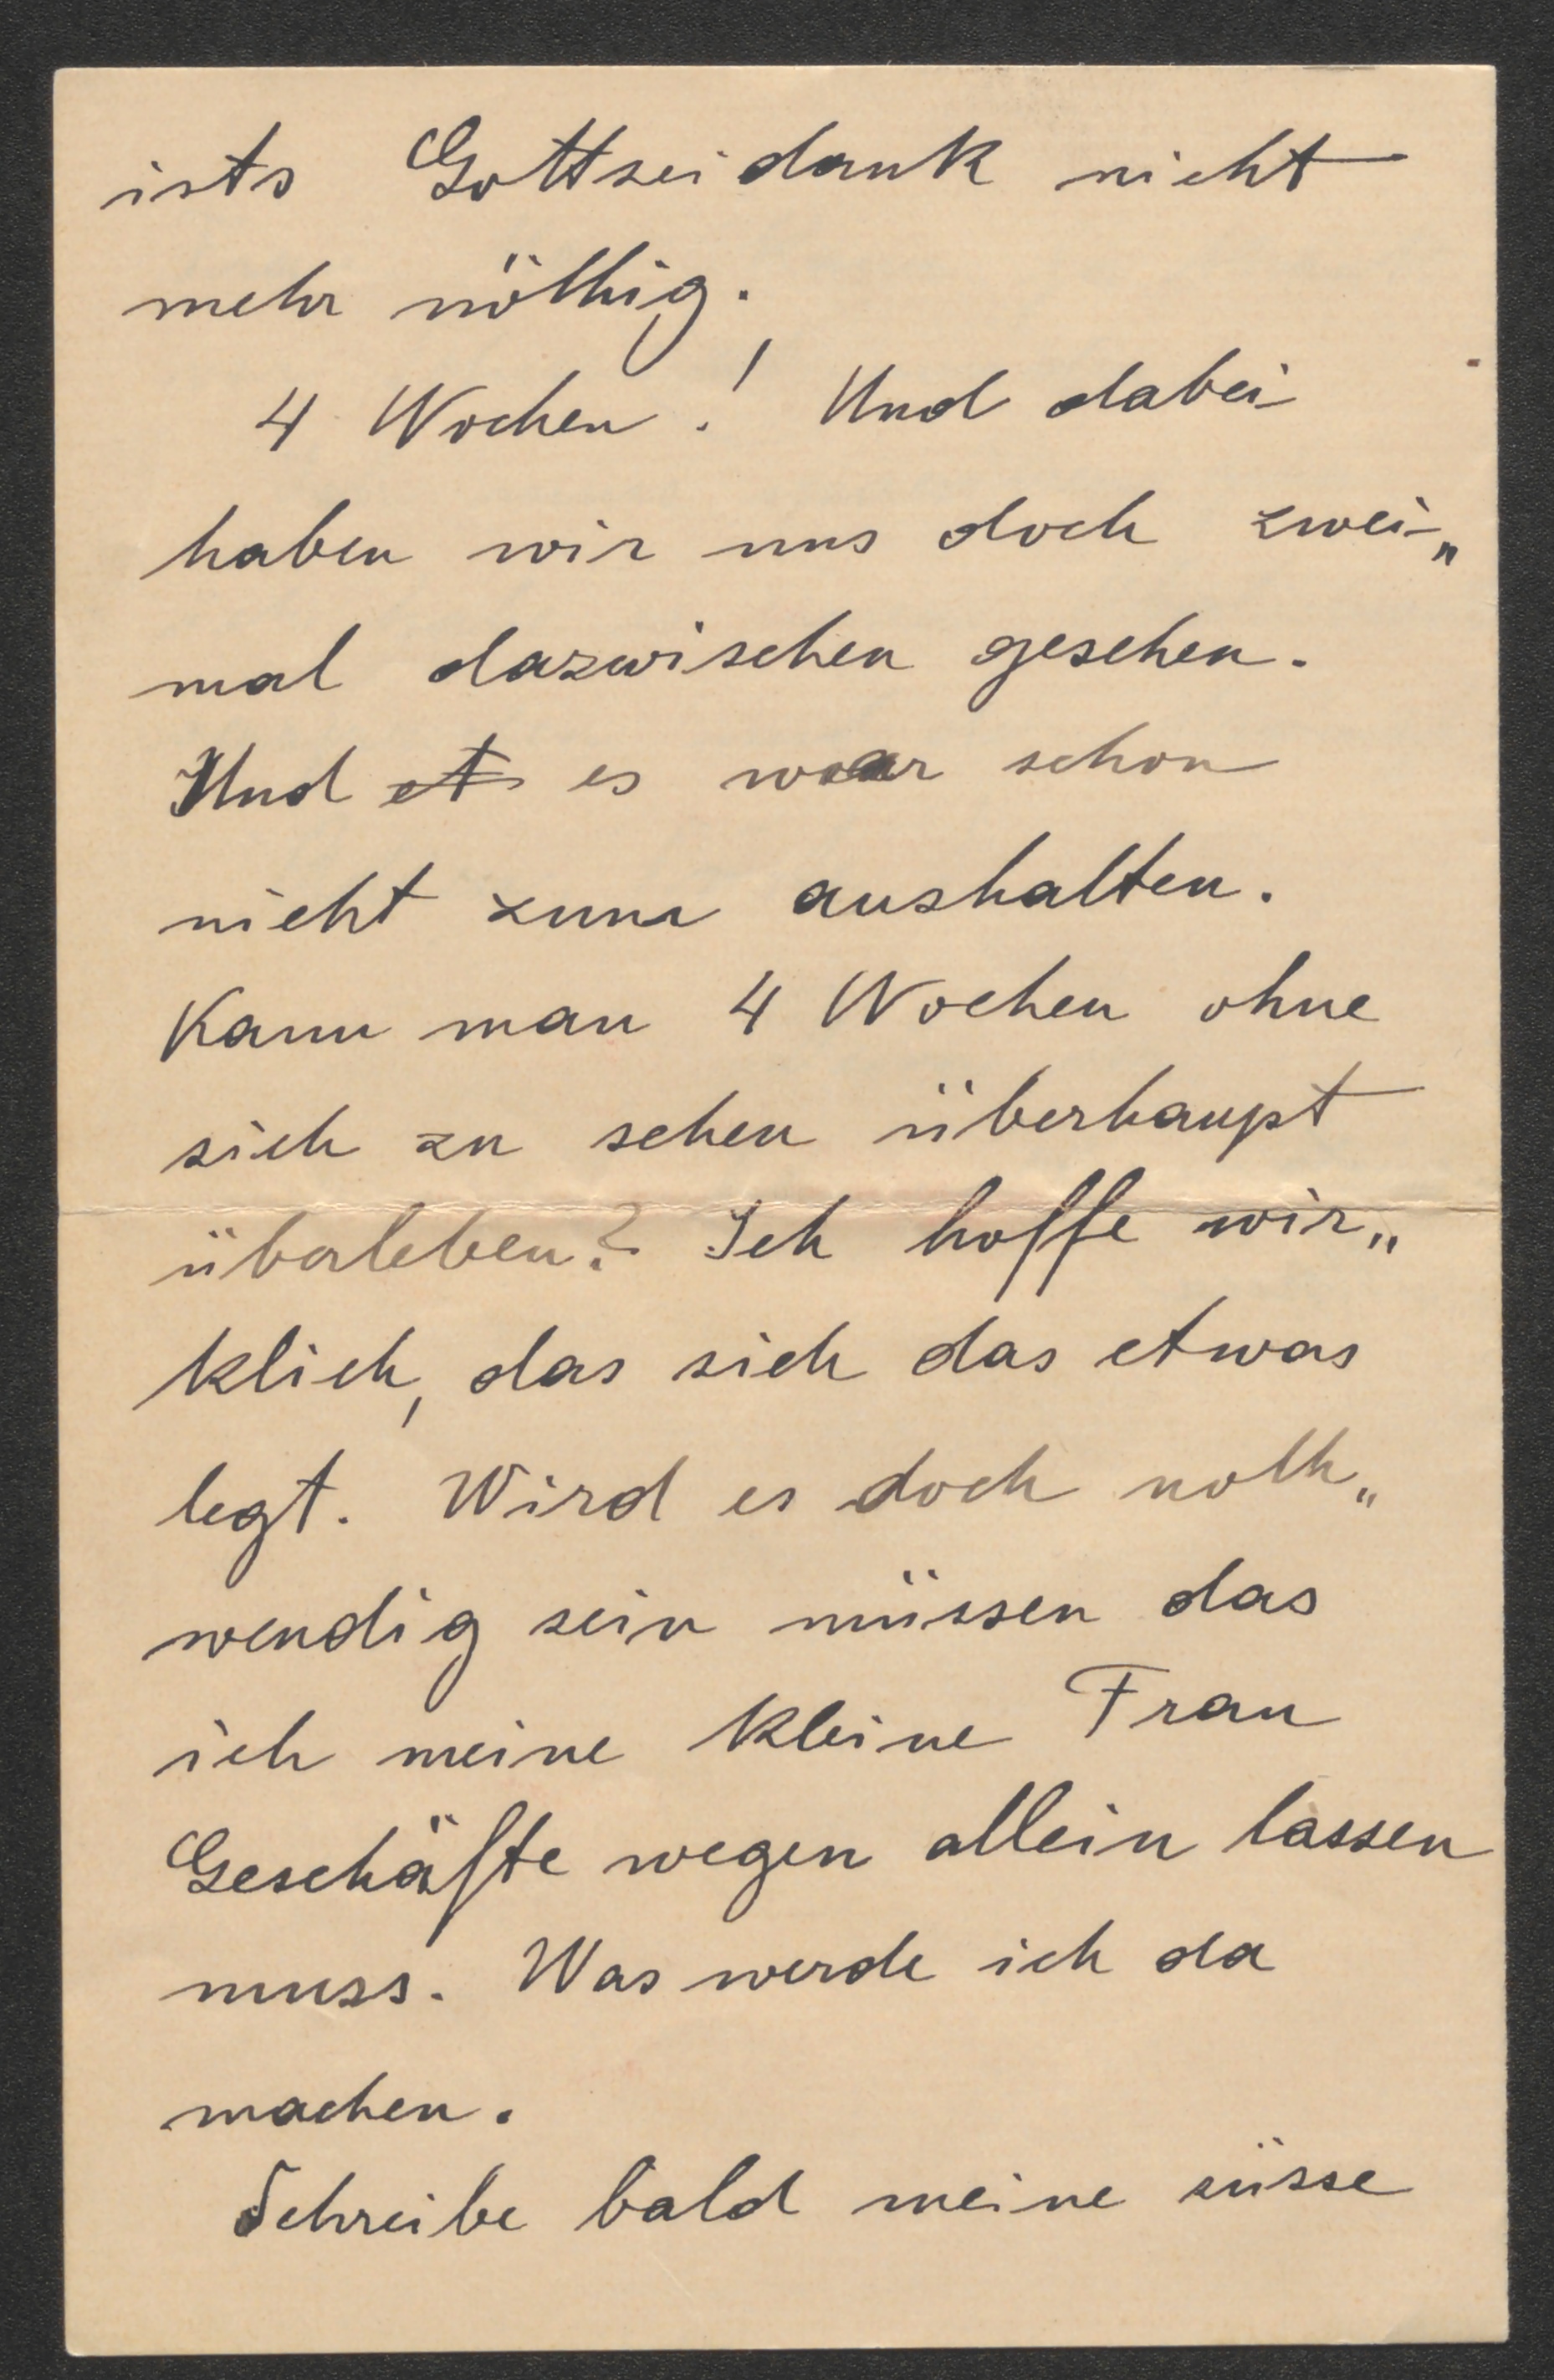 ists Gottseidank nicht
mehr nöthig.
4 Wochen! Und dabei
haben wir uns doch zwei„
mal dazwischen gesehen.
Und et es war schon
nicht zum aushalten.
Kann man 4 Wochen ohne
sich zu sehen überhaupt
überleben? Ich hoffe wir„
klich, das sich das etwas
legt. Wird es doch noth„
wendig sein müssen das
ich meine kleine Frau
Geschäfte wegen allein lassen
muss. Was werde ich da
machen.
Schreibe bald meine süsse